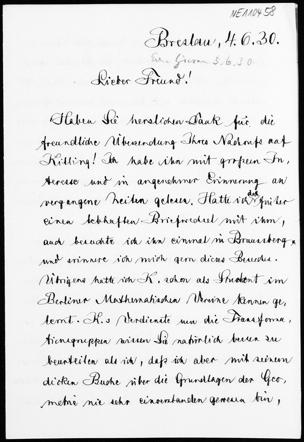 NE110458
Breslau, 4.6.30.
5.6.30.
Lieber Freund!
Haben Sie herzlichen Dank für die
freundliche Übersendung Ihres Nachrufs auf
Killing! Ich habe ihn mit großem In,
teresse und in angenehmer Erinnerung an
vergangene Zeiten gelesen. Hatte ich doch früher
einen lebhaften Briefwechsel mit ihm,
auch besuchte ich ihn einmal in Braunsberg
und erinnere mich gern dieses Besuches.
Übrigens hatte ich K. schon als Student im
Berliner Mathematischen Vereine kennen ge,
lernt. K.s Verdienste um die Transforma,
tionsgruppen wissen Sie natürlich besser zu
beurteilen als ich, daß ich aber mit seinem
dicken Buche über die Grundlagen der Geo,
metrie nie sehr einverstanden gewesen bin,